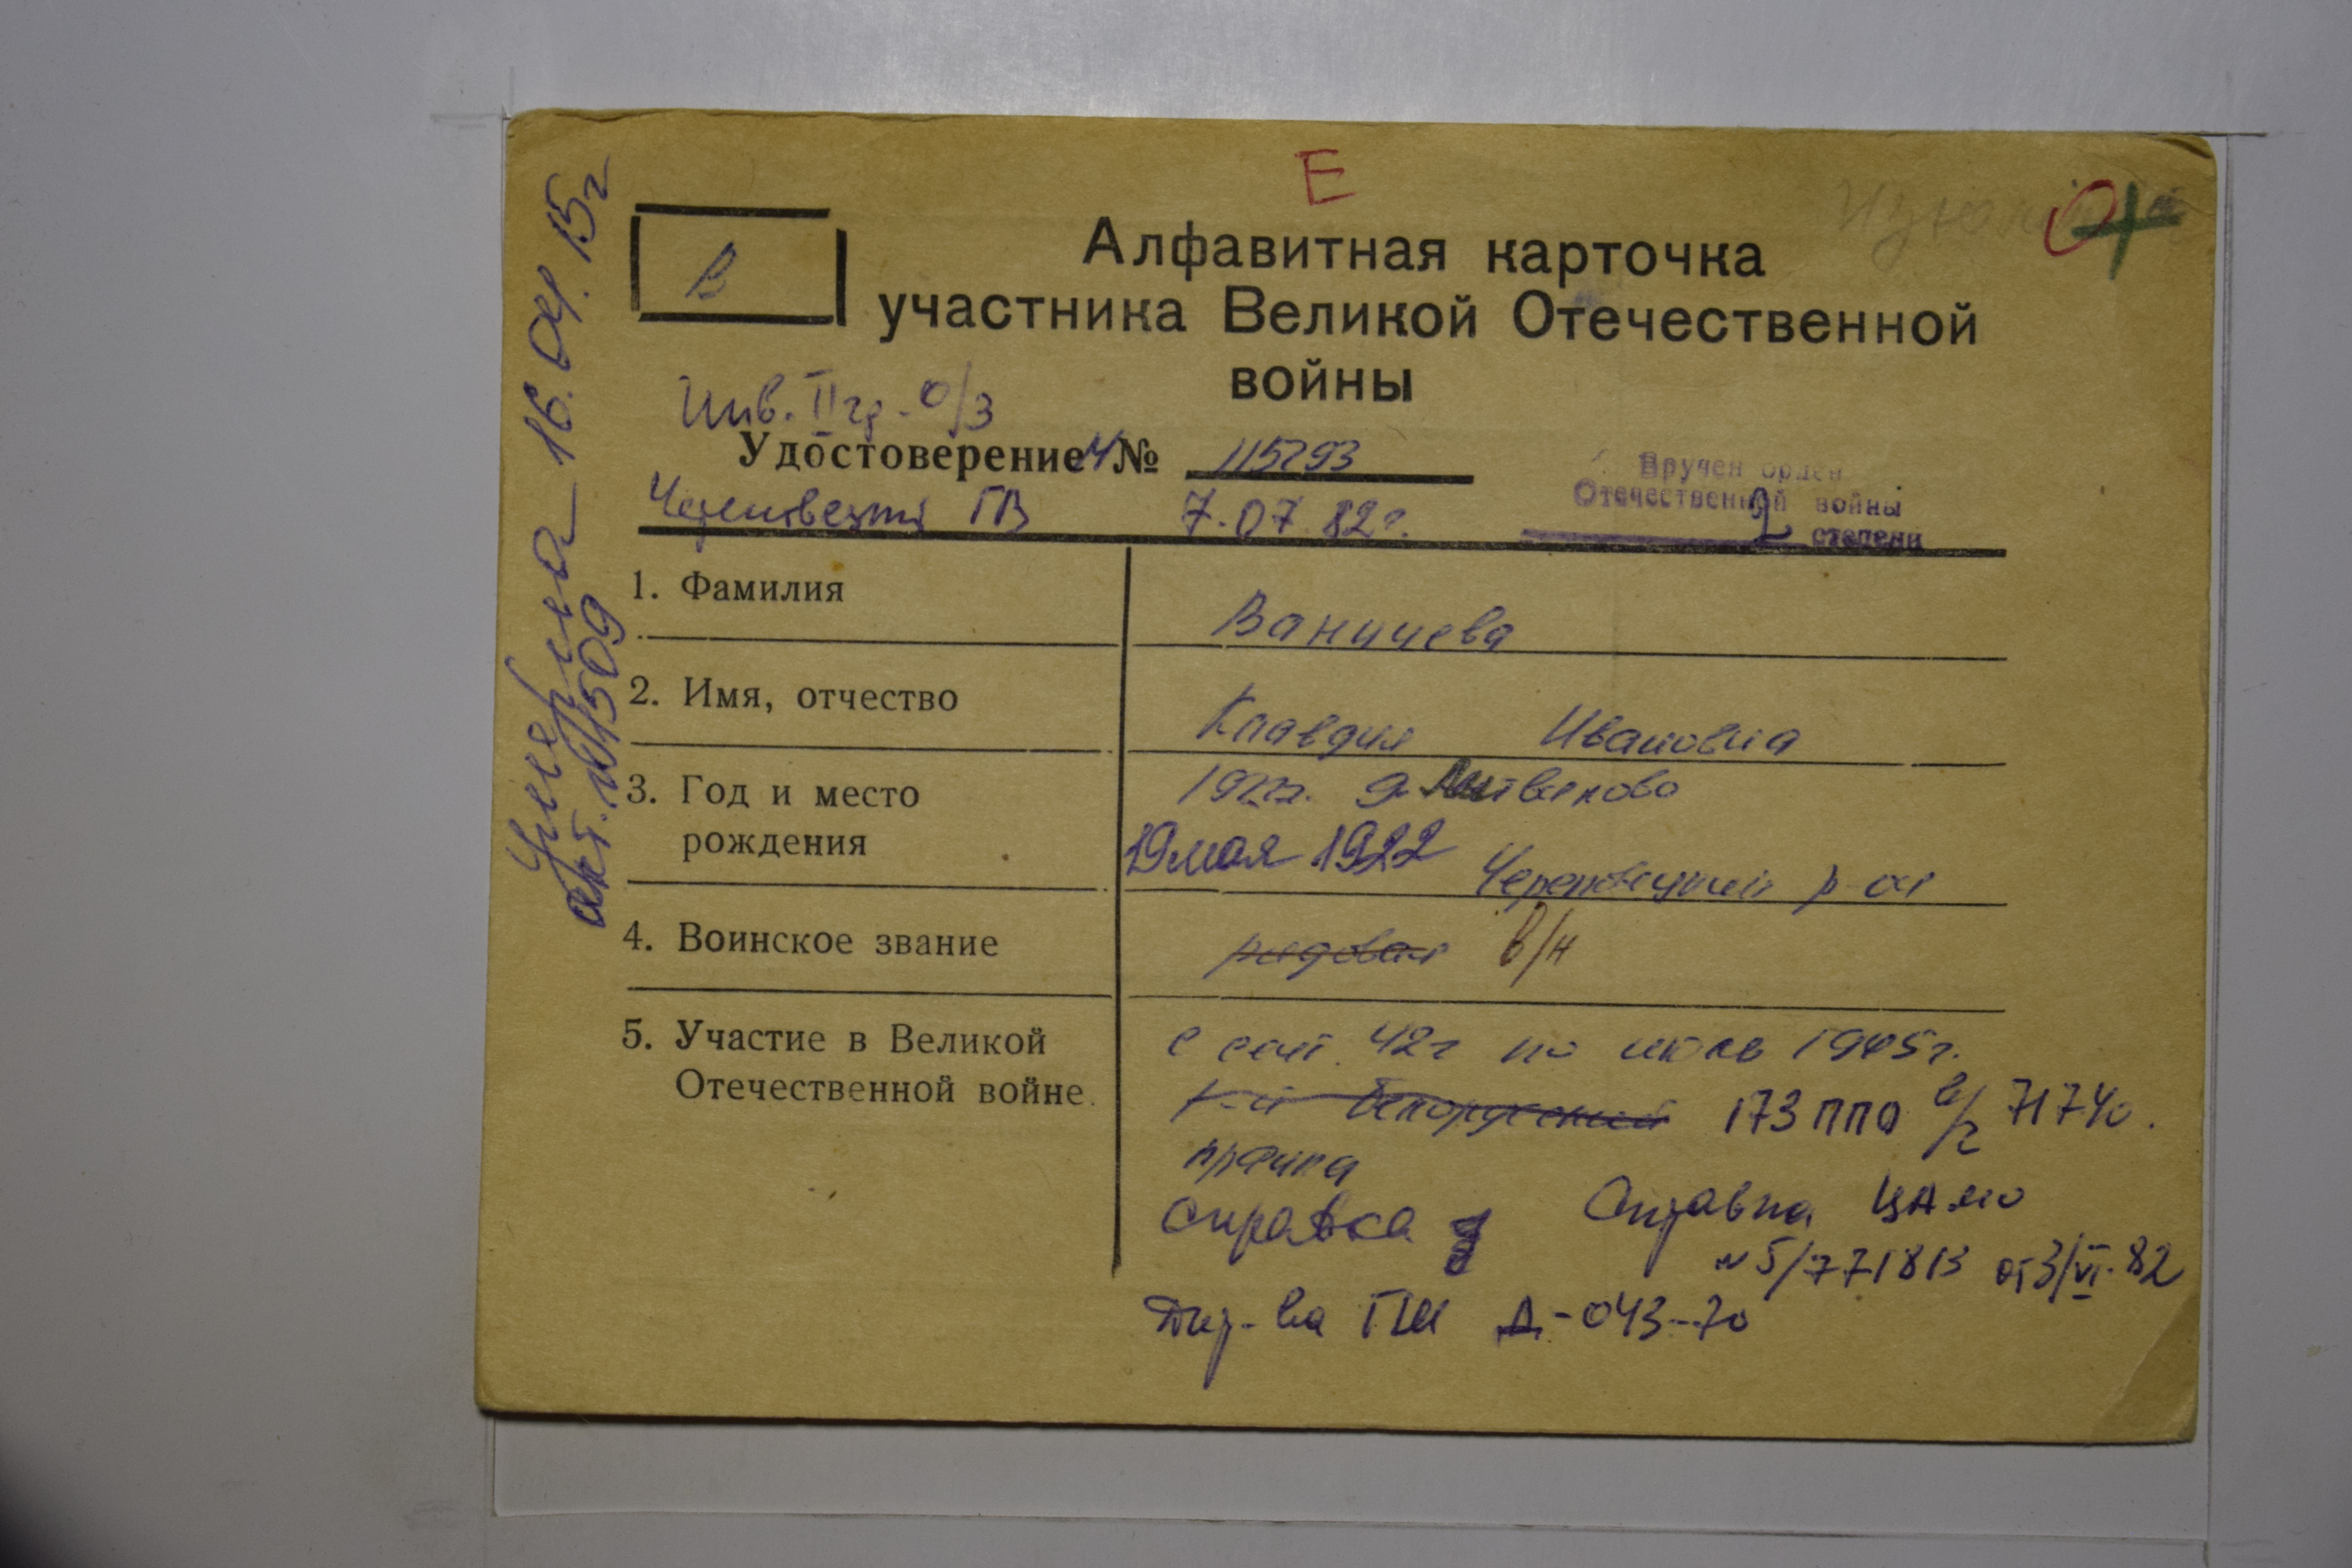 Е
О
В
Алфавитная карточка
участника Великой Отечественной
войны
Инв. II гр. о/з
Удостоверение № 115293
Череповецкий ГВ 7.07.82г.
Вручен орден
Отечественной войны
2 степени
умерла 16.04.15г
акт. №1509
1. Фамилия
Ваничева
2. Имя, отчество
Клавдия Ивановна
3. Год и место
рождения
1922г. д.
19 мая 1922
Череповецкий р-он
4. Воинское звание
рядовая в/н
5. Участие в Великой
Отечественной войне.
с сент. 42г по июль 1945г.
Белорусский 173 ППО в/ч 71740.
прачка
Справка
Справка ЦАМО
№5/771813 от 3/VI-82
Дир-ва ГШ Д-043-70